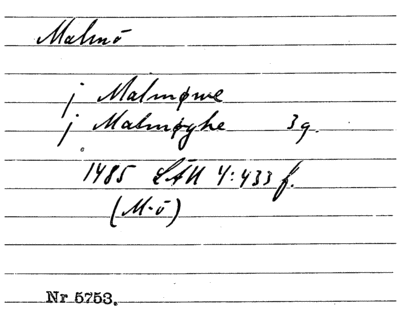 Malmö
j Malmøwe
j Malmøyhe 3g.
1485 LÄU 4:433 f.
(M-ö)
Nr 5753.